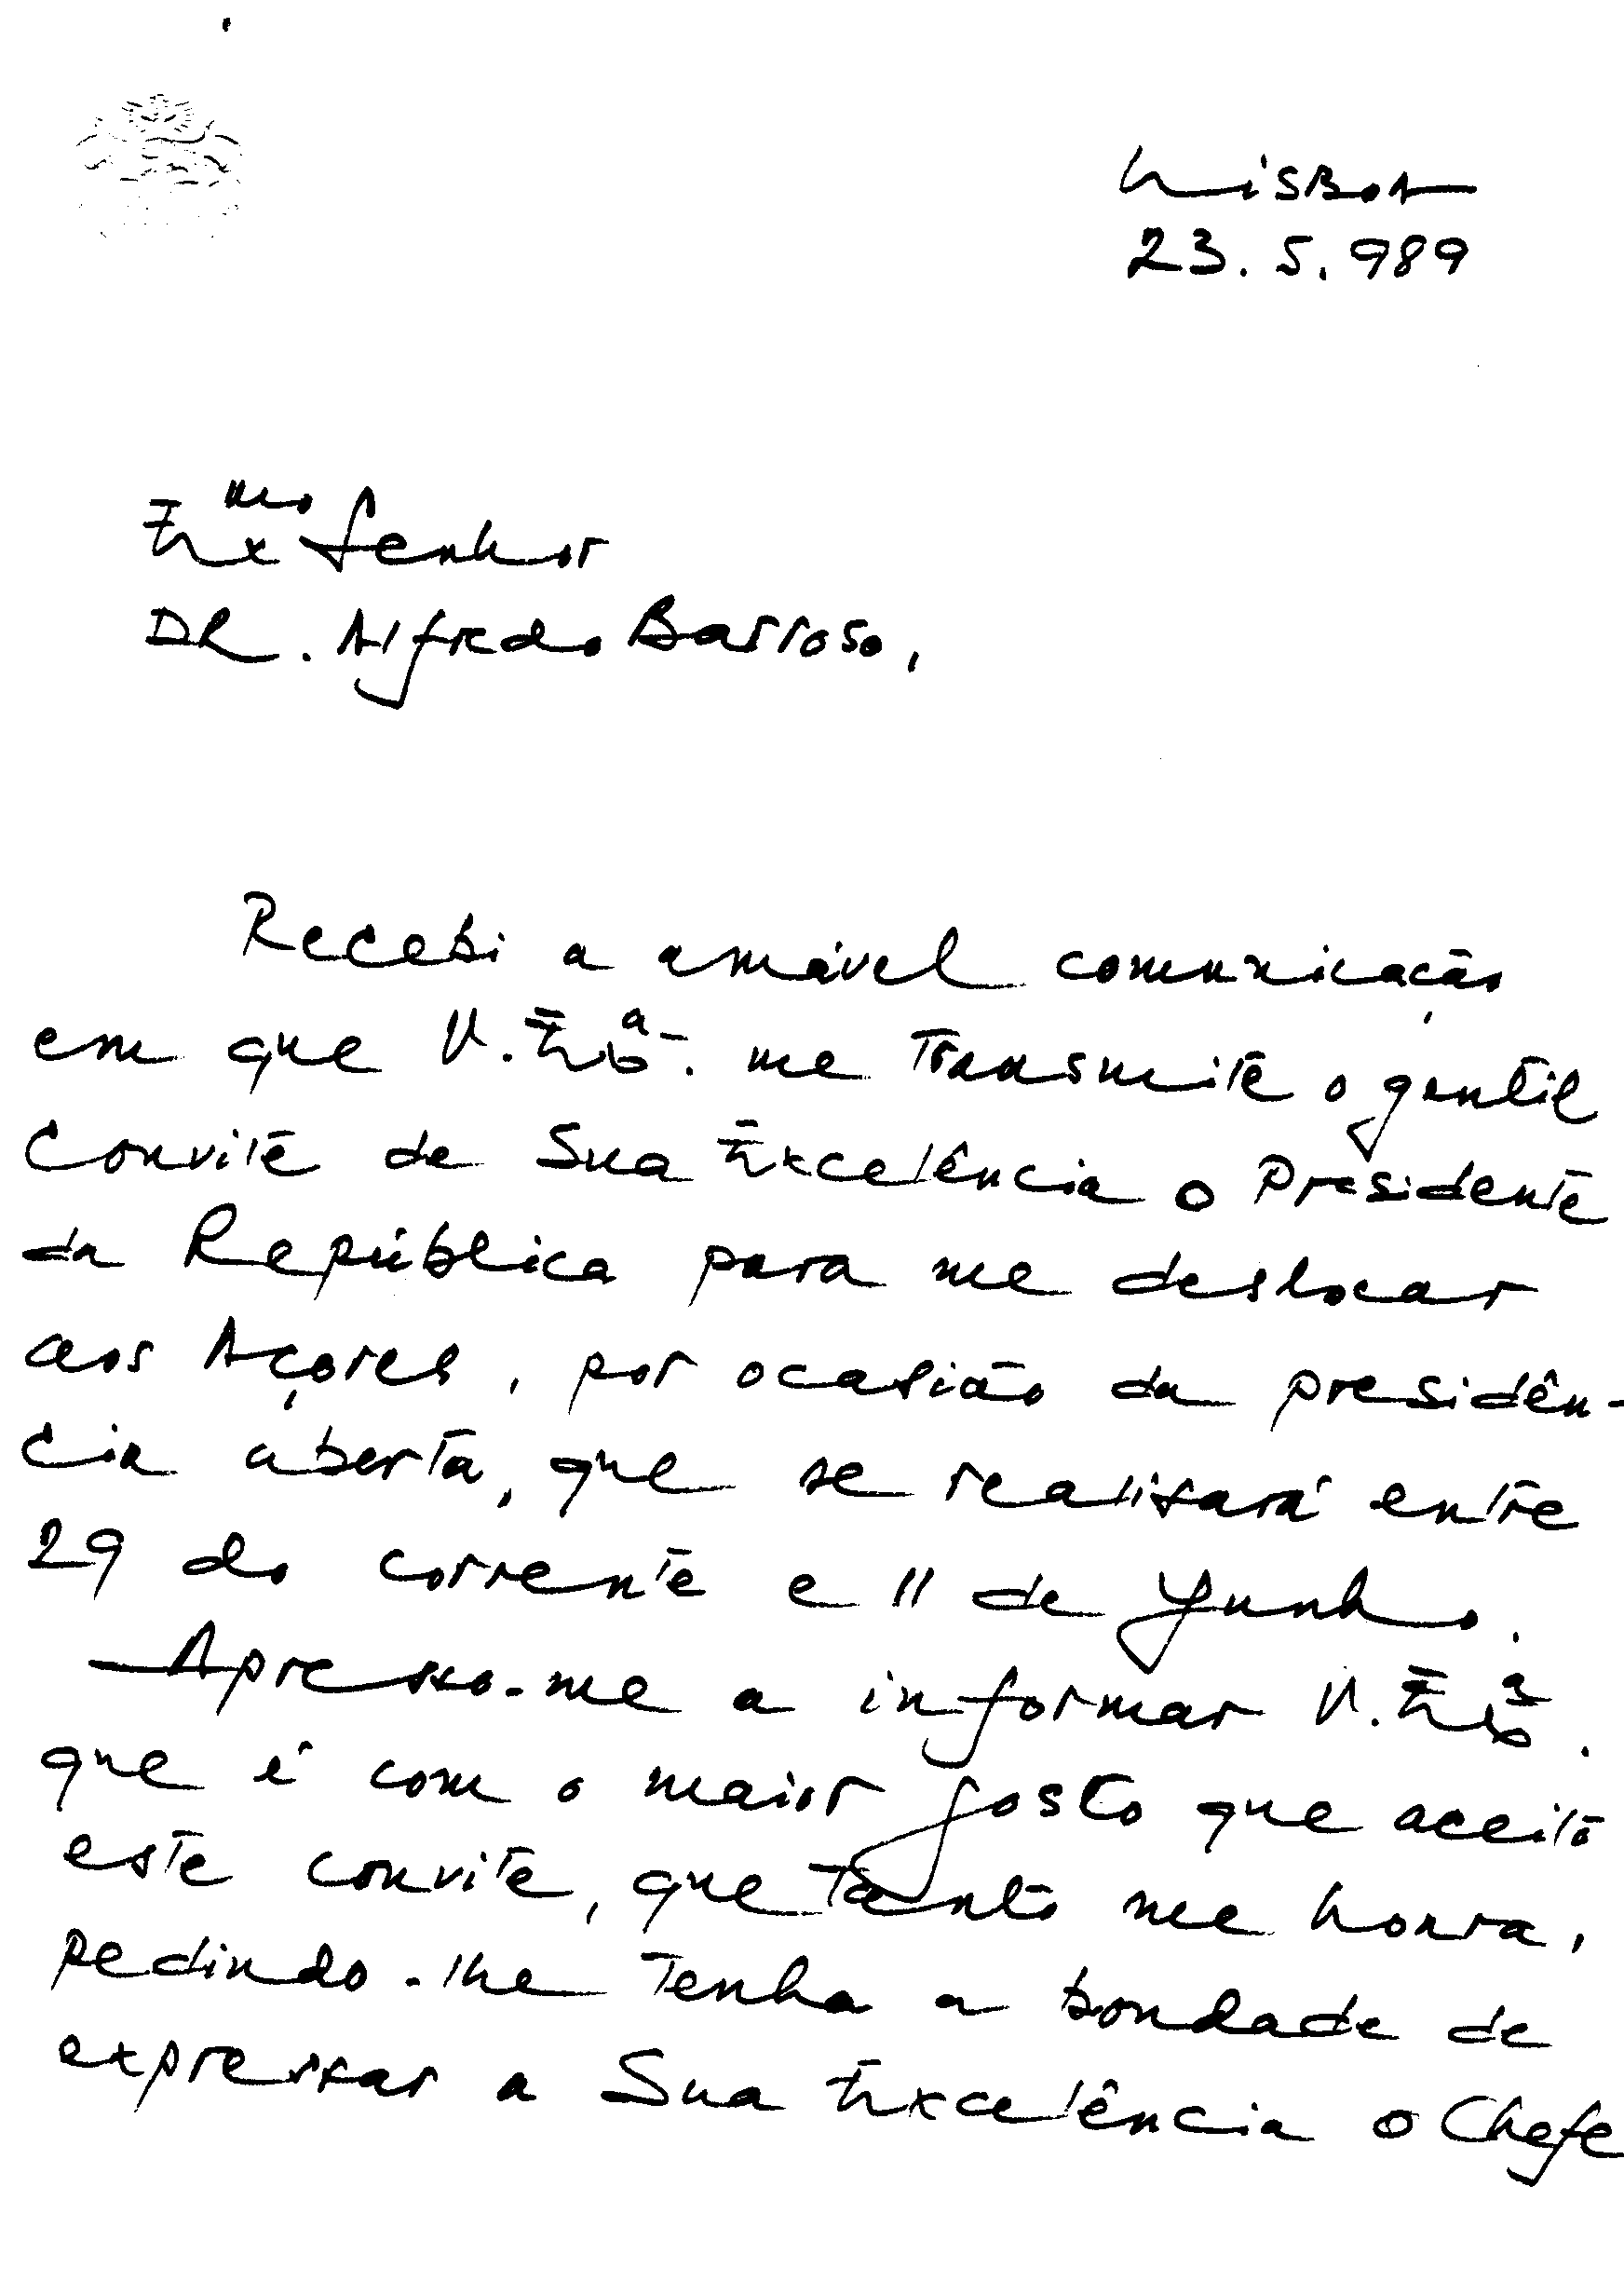 Lisboa
23. 5. 989
Exmo Senhor
DR. Alfredo Barroso,
Recebi a amável comunicação
em que V. Exª. me transmite o gentil
convite de Sua Excelência o Presidente
da República para me deslocar
aos Açores, por ocasião da presidên-
cia aberta, que se realizará entre
29 do corrente e 11 de Junho.
Apresso-me a informar V. Exª.
que é com o maior gosto que aceito
este convite, que tanto me honra,
pedindo-lhe tenha a bondade de
expressar a Sua Excelência o Chefe